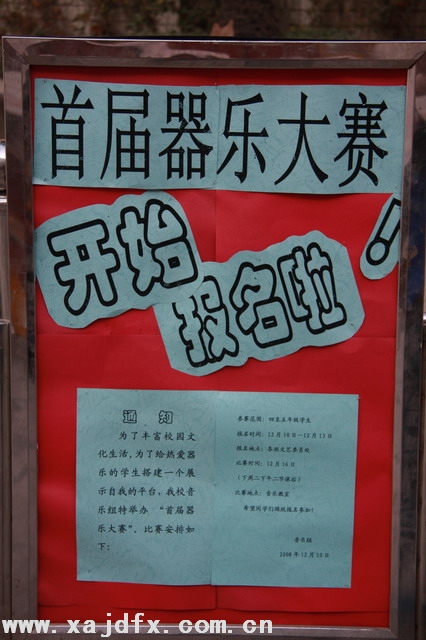 首届器乐大赛
开始
报名啦！
通知
为了丰富校园文
化生活，为了给燃爱器
乐的学生搭建一个展
示自我的平台，我校音
乐组特举办“首届器
乐大赛”。比赛安排如
下：
参赛范围：四至五年级学生
报名时间：12月10日—12月13日
报名地点：各班文艺委员处
比赛时间：12月16日
（下周二下午二节课后）
比赛地点：音乐教室
希望同学们踊跃报名参加！
音乐组
2008年12月10日
www.xajdfx.com.cn